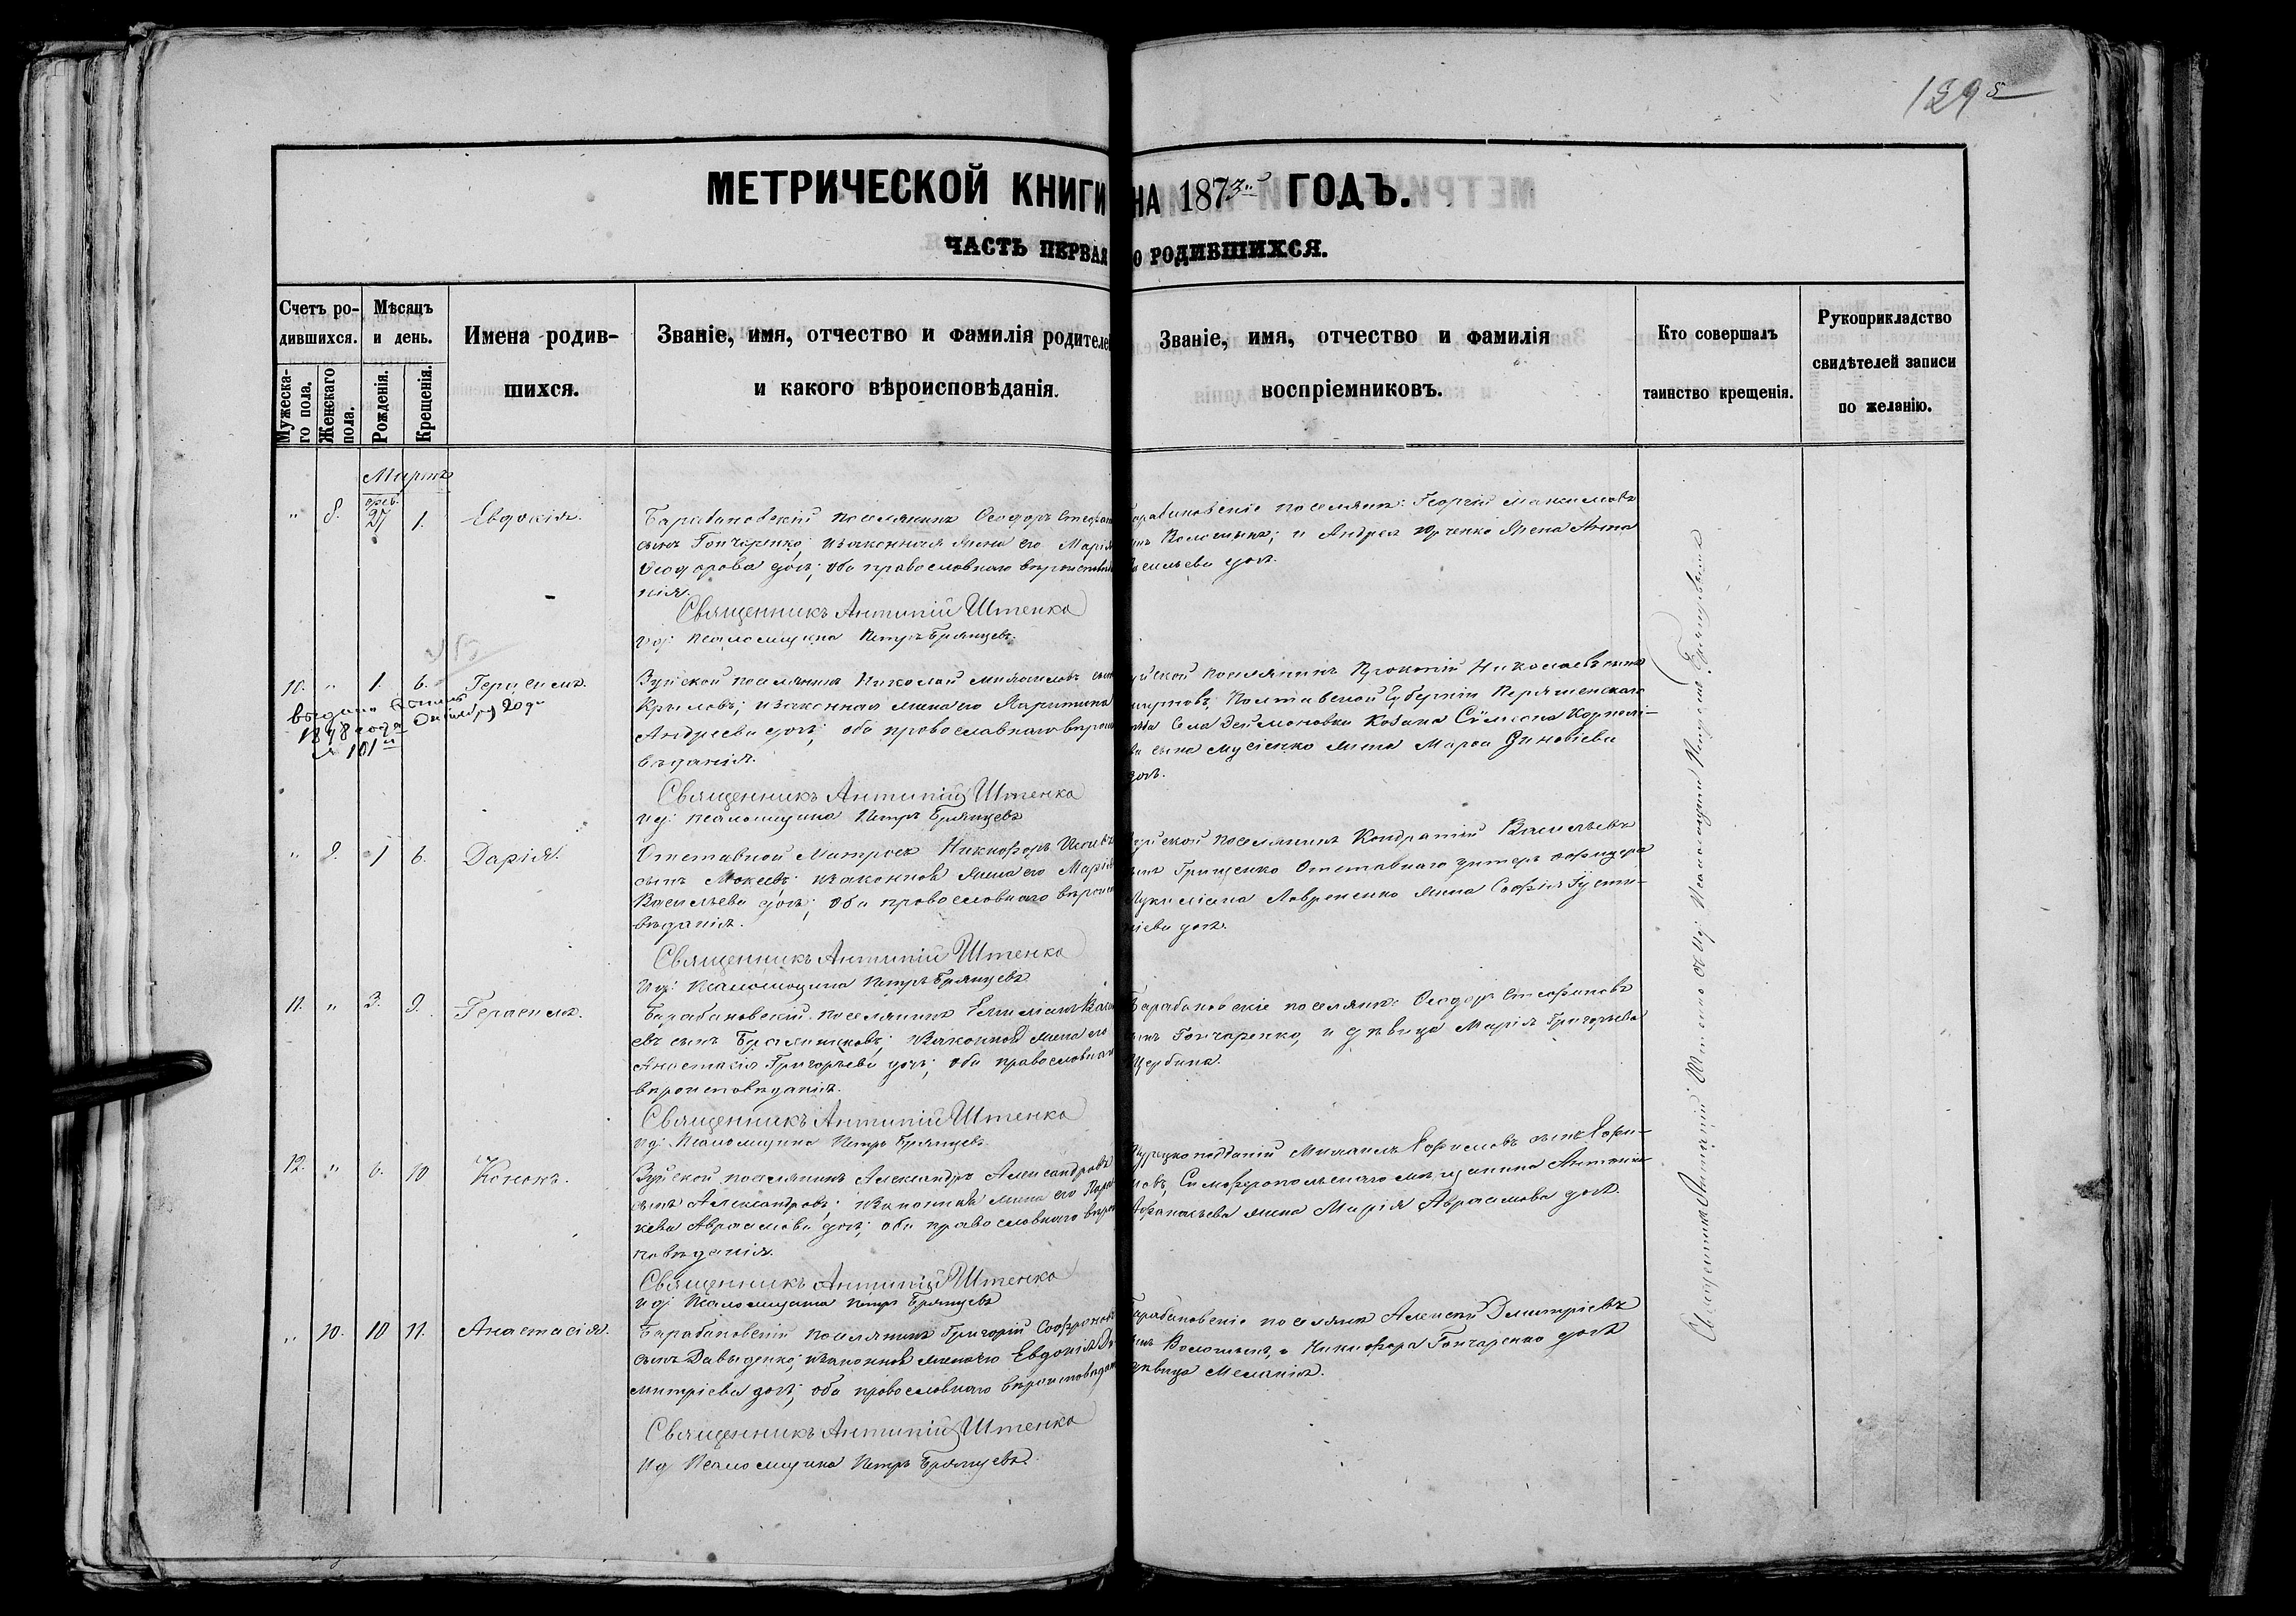 129 5
МЕТРИЧЕСКОЙ КНИГИ НА 1873й ГОДЪ.
ЧАСТЬ ПЕРВАЯ О РОДИВШИХСЯ.
Счетъ ро-
дившихся.
Мужеска-
го пола.
Женскаго
пола.
Мѣсяцъ
и день.
Рожденія.
Крещенія.
Имена родив-
шихся.
Званіе, имя, отчество и фамилія родителе
и какого вѣроисповѣданія.
Званіе, имя, отчество и фамилія
воспріемниковъ.
Кто совершалъ
таинство крещенія.
Рукоприкладство
свидѣтелей записи
по желанію.
Мартъ
февр.
" 8. 27 1. Евдокія.
Барабановскій поселянинъ Ѳеодоръ Стефан
сынъ Гончаренко; и законная жена его Марія
Ѳеодорова доч; оба православнаго вѣроисповѣда
нія.
Священникъ Антипій Штенко
и д. Псаломщика Петръ Брянцевъ.
арабановскіе поселяне: Георгій Максимовъ
нъ Волошинъ; и Андрея Юрченко жена Анна
асильева доч.
10. " 1. 6. Герасимъ.
выдана
1898 года Октября 20 дн
№ 101й
Зуйской поселянинъ Николай Михаиловъ сын
Крыловъ; и законная жена его Харитина
Андреева доч; оба православнаго вѣроис
вѣданія.
Священникъ Антипій Штенко
и д. псаломщика Петръ Брянцевъ
уйской поселянинъ Прокопій Николаевъ сынъ
мирновъ; Полтавской Губерніи
Села Козака Сѵмеона Корнилі-
ва сына Мусіенко жена Марѳа Зиновіева
доч.
" 9. 1 6. Дарія.
Отставной Матросъ Никифоръ
сынъ Мокеевъ; и законная жена его Марія
Васильева доч; оба православнаго вѣроис
вѣданія.
Священникъ Антипій Штенко
И д. Псаломщика Петръ Брянцевъ
уйской поселянинъ Кондратій Васильевъ
ынъ Грищенко Отставнаго унтеръ офицера
Лукиліана Лавриненко жена Софія Іусти-
ніева доч.
11. " 3. 9. Герасимъ.
Барабановскій поселянинъ Емиліанъ
евъ сынъ и законная жена его
Анастасія Григорьева доч; оба православна
вѣроисповѣданія.
Священникъ Антипій Штенко
и д. Псаломщика Петръ Брянцевъ
Барабановскіе поселяне: Ѳеодоръ Стефановъ
ынъ Гончаренко, и дѣвица Марія Григорьева
Щербина.
12. " 6. 10 Кононъ.
Зуйской поселянинъ Александръ Александровъ
сынъ Александровъ; и законная жена его Парас
кева Авраамова доч; оба православнаго вѣрои
повѣданія.
Священникъ Антипій Штенко
и д. Псаломщика Петръ Брянцевъ
Турецкоподданый Михаилъ
новъ, Симферопольскаго мѣщанина
Афанасьева жена Марія Авраамова доч.
" 10. 10 11. Анастасія.
Барабановскій поселянинъ Григорій Софронов
сынъ Давыденко; и законная жена его Евдокія Ди
митріева доч; оба православнаго вѣроисповѣдан
Священникъ Антипій Штенко
И д Псаломщика Петръ Брянцевъ.
арабановскіе поселяне Алексій Димитріевъ
ынъ Волошинъ, и Никифора Гончаренко доч
дѣвица Меланія.
Священникъ Антипій Штенко и И д. Псаломщика Петръ Брянцевъ